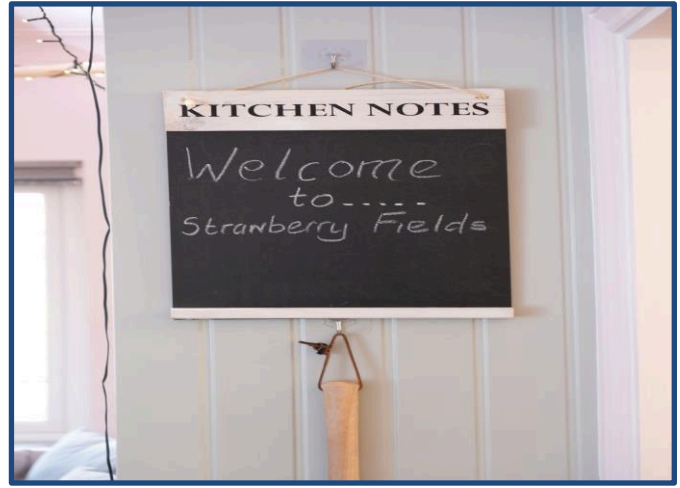 KITCHEN NOTES
Welcome
to.....
Strawberry Fields